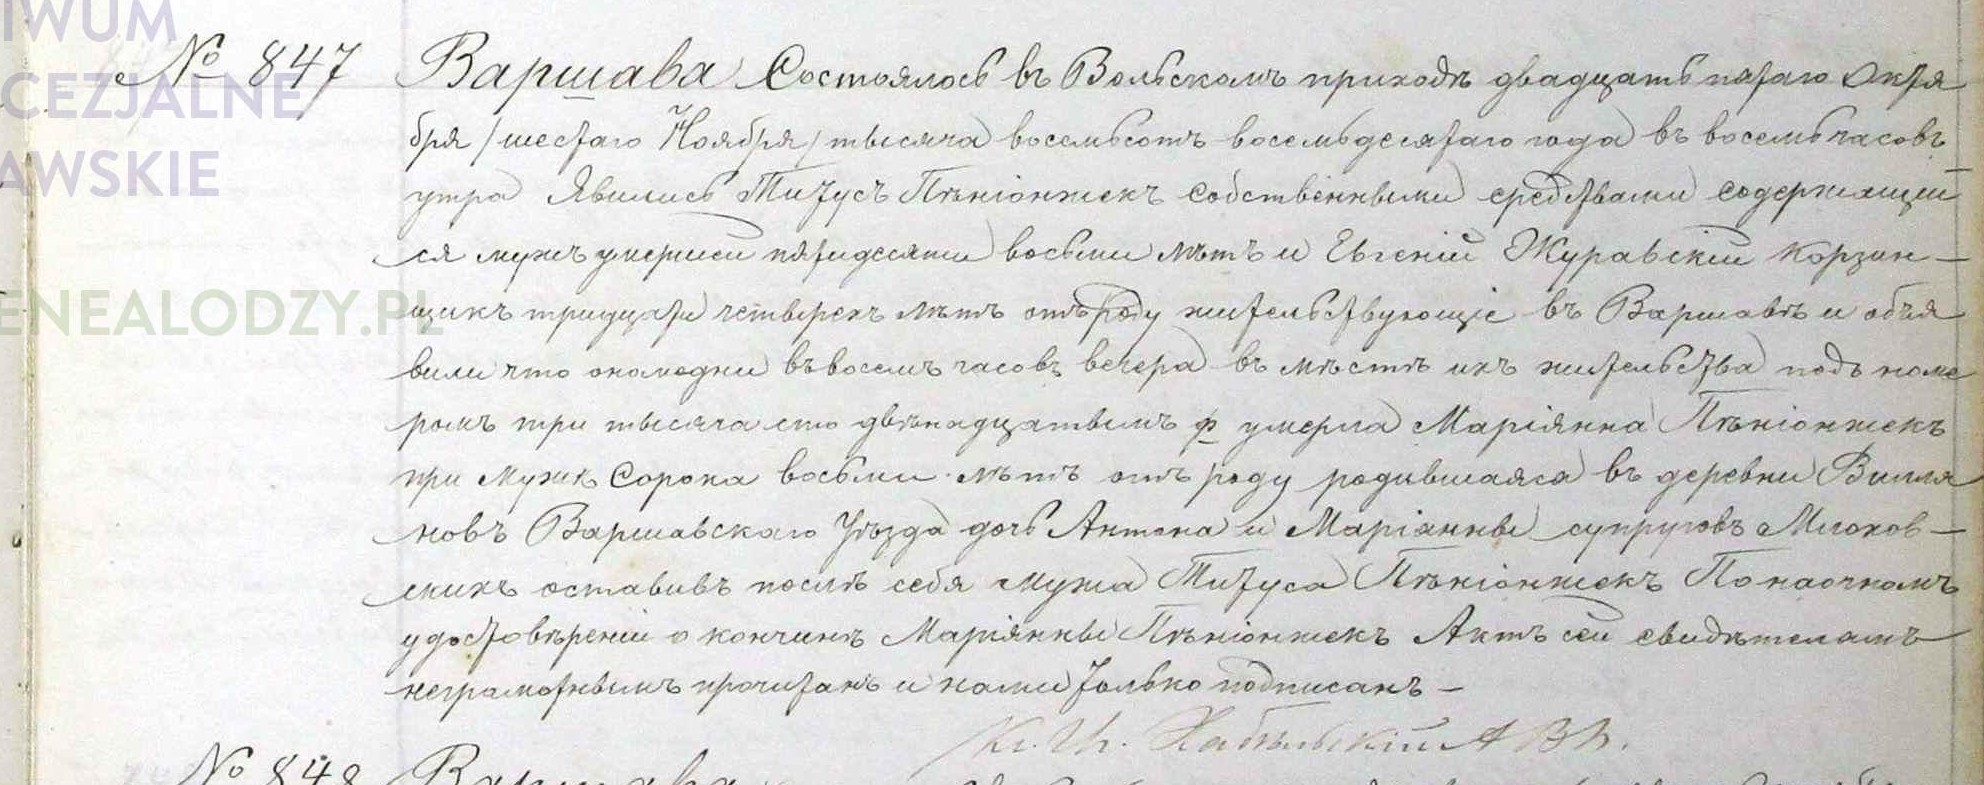 IWUM
CEZJALNE
AWSKIE
ENEALODZY.PL
№ 847 Варшава Состоялось въ Вольскомъ приходѣ двадцать пятаго Октя
бря / шестаго Ноября / тысяча восемьсотъ восемьдесятаго года въ восемь часовъ
утра Явились Титусъ Пѣніонжекъ собственными средствами содержащій
ся мужъ умершей пятидесяти восьми лѣтъ и Евгеній Журавскій корзин-
щикъ тридцати четырехъ лѣтъ отъ роду жительствующіе въ Варшавѣ и объя
вили что ономедни въ восемъ часовъ вечера въ мѣстѣ ихъ жительства подъ номе
ромъ три тысяча сто двѣнадцатымъ ф умерла Маріянна Пѣніонжекъ
при мужѣ Сорока восьми лѣтъ отъ роду родившаяся въ деревни Вилля
новъ Варшавскаго Уѣзда дочь Антона и Маріанны супруговъ Млохов-
скихъ оставивъ послѣ себя мужа Титуса Пѣніонжекъ По наочномъ
удостовѣреніи о кончинѣ Маріянны Пѣніонжекъ Актъ сей свидѣтелямъ
неграмотнымъ прочитанъ и нами только подписанъ -
№ 848 Варшава